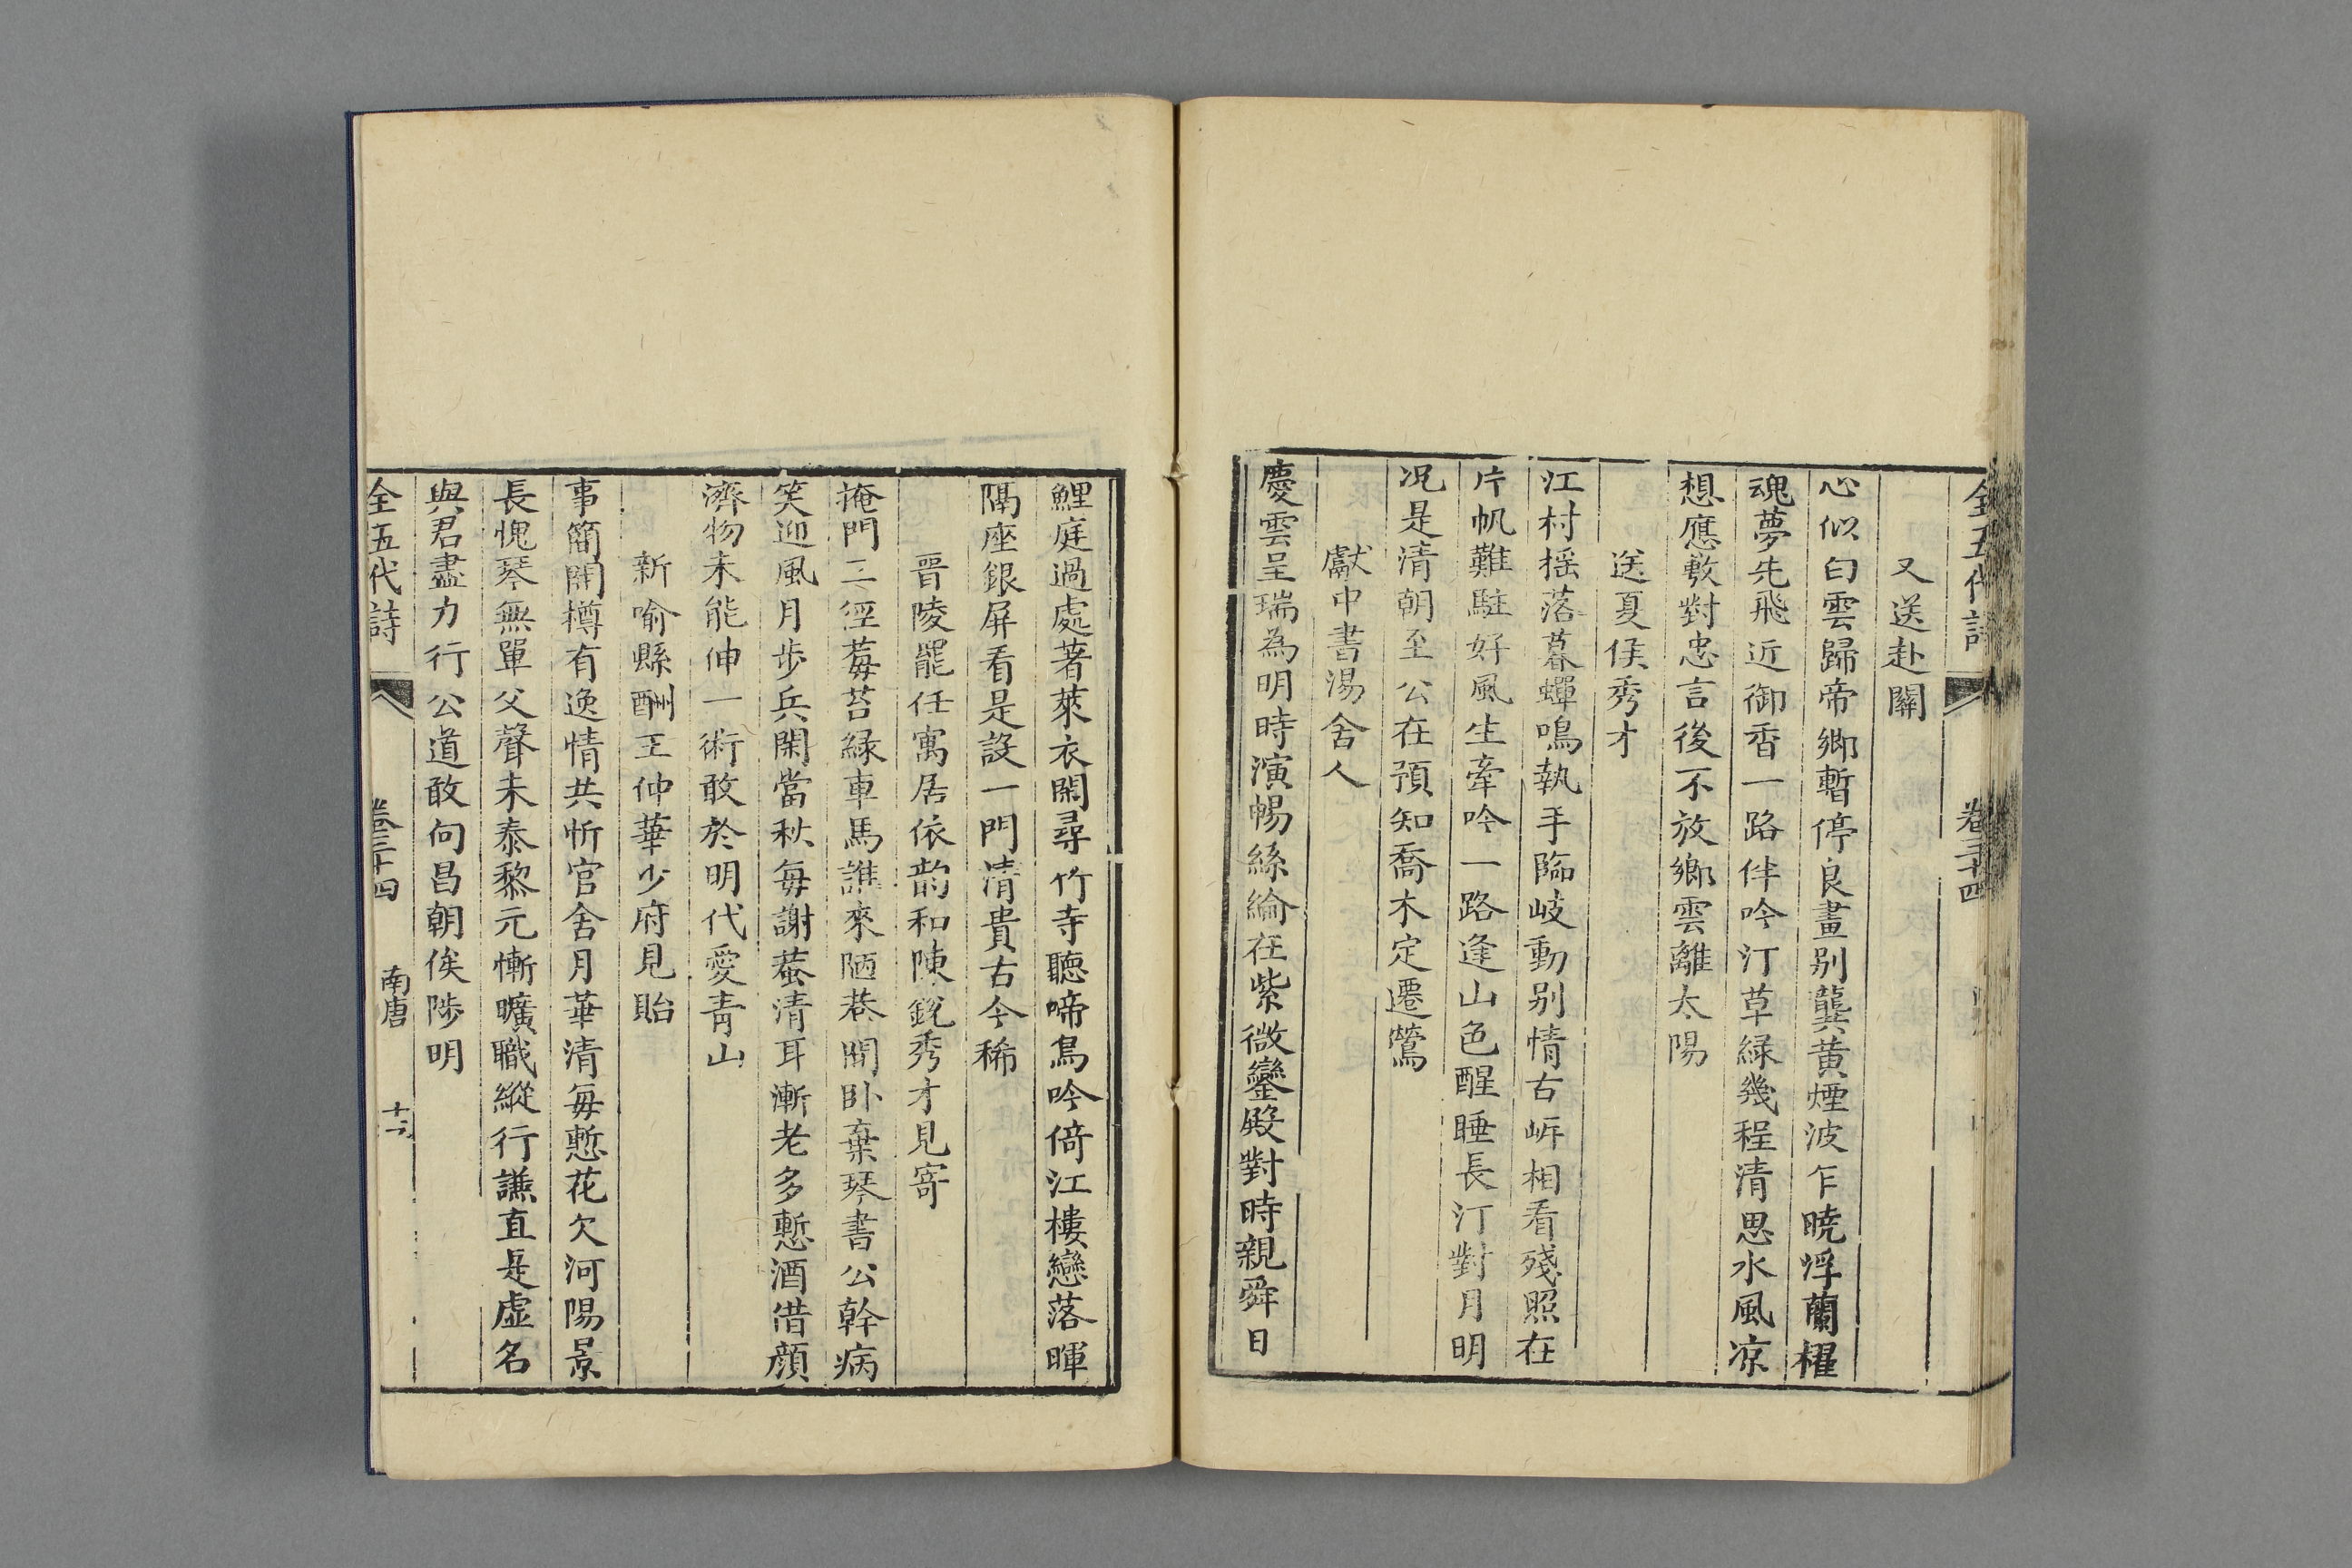 全五代詩 卷三十四
又送赴闗
心似白雲歸帝鄉暫停良畫别龔黄煙波乍曉浮蘭櫂
魂夢先飛近御香一路伴吟汀草緑幾程清思水風凉
想應敷對忠言後不放鄉雲離太陽
送夏侯秀才
江村揺落暮蟬鳴執手臨岐動别情古岍相看殘照在
片帆難駐好風生牽吟一路逢山色醒睡長汀對月明
况是清朝至公在預知喬木定遷鶯
獻中書湯舍人
慶雲呈瑞為明時演暢絲綸在紫微鑾殿對時親舜日
鯉庭過處著萊衣閑尋竹寺聽啼鳥吟倚江樓戀落暉
隔座銀屏看是設一門清貴古今稀
晋陵罷任寓居依韵和陳鋭秀才見寄
掩門三徑莓苔緑車馬誰來陋巷間卧棄琴書公幹病
笑迎風月步兵閑當秋每謝蛬清耳漸老多慙酒借顔
濟物未能伸一術敢於明代愛青山
新喻縣酬王仲華少府見貽
事簡開樽有逸情共忻官舍月華清每慙花欠河陽景
長愧琴無單父聲未泰黎元慚曠職縱行謙直是虚名
與君盡力行公道敢向昌朝俟陟明
全五代詩 卷三十四 南唐